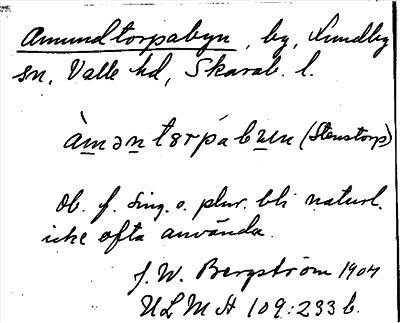 Amundtorpabyn, by, Sundby
sn, Valle hd, Skarab. l.
àməntɘrpabɯn (Stenstorp)
Ob. f. sing. o. plur. bli naturl.
icke ofta använda.
J. W. Bergström 1904
ULMA 109:233 b.